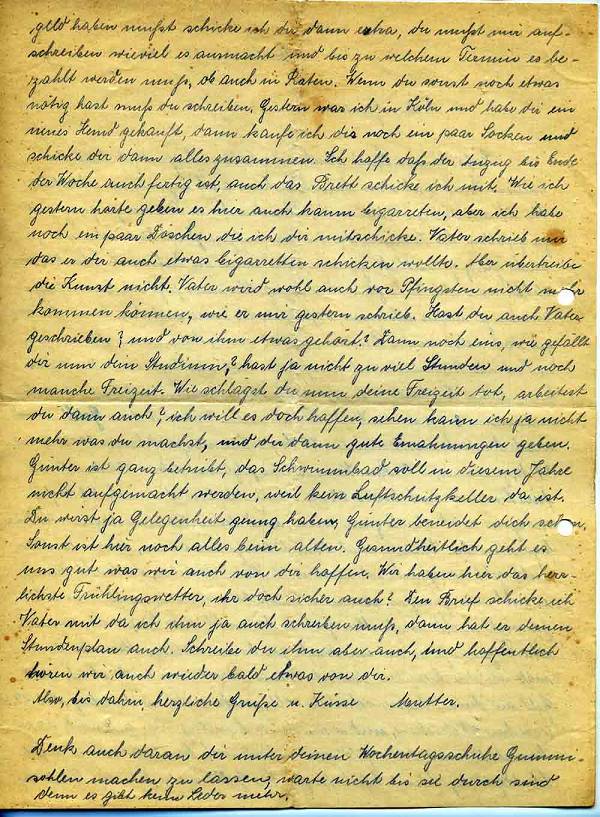 geld haben mußt schicke ich dir dann extra, du mußt mir auf-
schreiben wieviel es ausmacht und bis zu welchem Termin es be-
zahlt werden muß, ob auch in Raten. Wenn du sonst noch etwas
nötig hast muß du schreiben. Gestern war ich in Köln und habe dir ein
neues Hemd gekauft, dann kaufe ich dir noch ein paar Socken und
schicke dir dann alles zusammen. Ich hoffe daß der Anzug bis Ende
der Woche auch fertig ist, auch das Brett schicke ich mit. Wie ich
gestern hörte geben es hier auch kaum Cigarreten, aber ich habe
noch ein paar Döschen die ich dir mitschicke. Vater schrieb mir
das er dir auch etwas Cigarretten schicken wollte. Aber übertreibe
die Kunst nicht. Vater wird wohl auch vor Pfingsten nicht mehr
kommen können, wie er mir gestern schrieb. Hast du auch Vater
geschrieben? und von ihm etwas gehört? Dann noch eins, wie gefällt
dir nun dein Studium,? hast ja nicht zu viel Stunden und noch
manche Freizeit. Wie schlägst du nun deine Freizeit tot, arbeitest
du dann auch? ich will es doch hoffen, sehen kann ich ja nicht
mehr was du machst, und dir dann gute Ermahnungen geben.
Günter ist ganz betrübt, das Schwimmbad soll in diesem Jahre
nicht aufgemacht werden, weil kein Luftschutzkeller da ist.
Du wirst ja Gelegenheit genug haben, Günter beneidet dich schon.
Sonst ist hier noch alles beim alten. Gesundheitlich geht es
uns gut was wir auch von dir hoffen. Wir haben hier das herr-
lichste Frühlingswetter, ihr doch sicher auch? Den Brief schicke ich
Vater mit da ich ihm ja auch schreiben muß, dann hat er deinen
Stundenplan auch. Schreibe du ihm aber auch, und hoffentlich
hören wir auch wieder bald etwas von dir.
Also, bis dahin, herzliche Grüße u. Küsse Mutter.
Denk auch daran dir unter deinen Wochentagsschuhe Gummi-
sohlen machen zu lassen, warte nicht bis sie durch sind
denn es gibt kein Leder mehr.